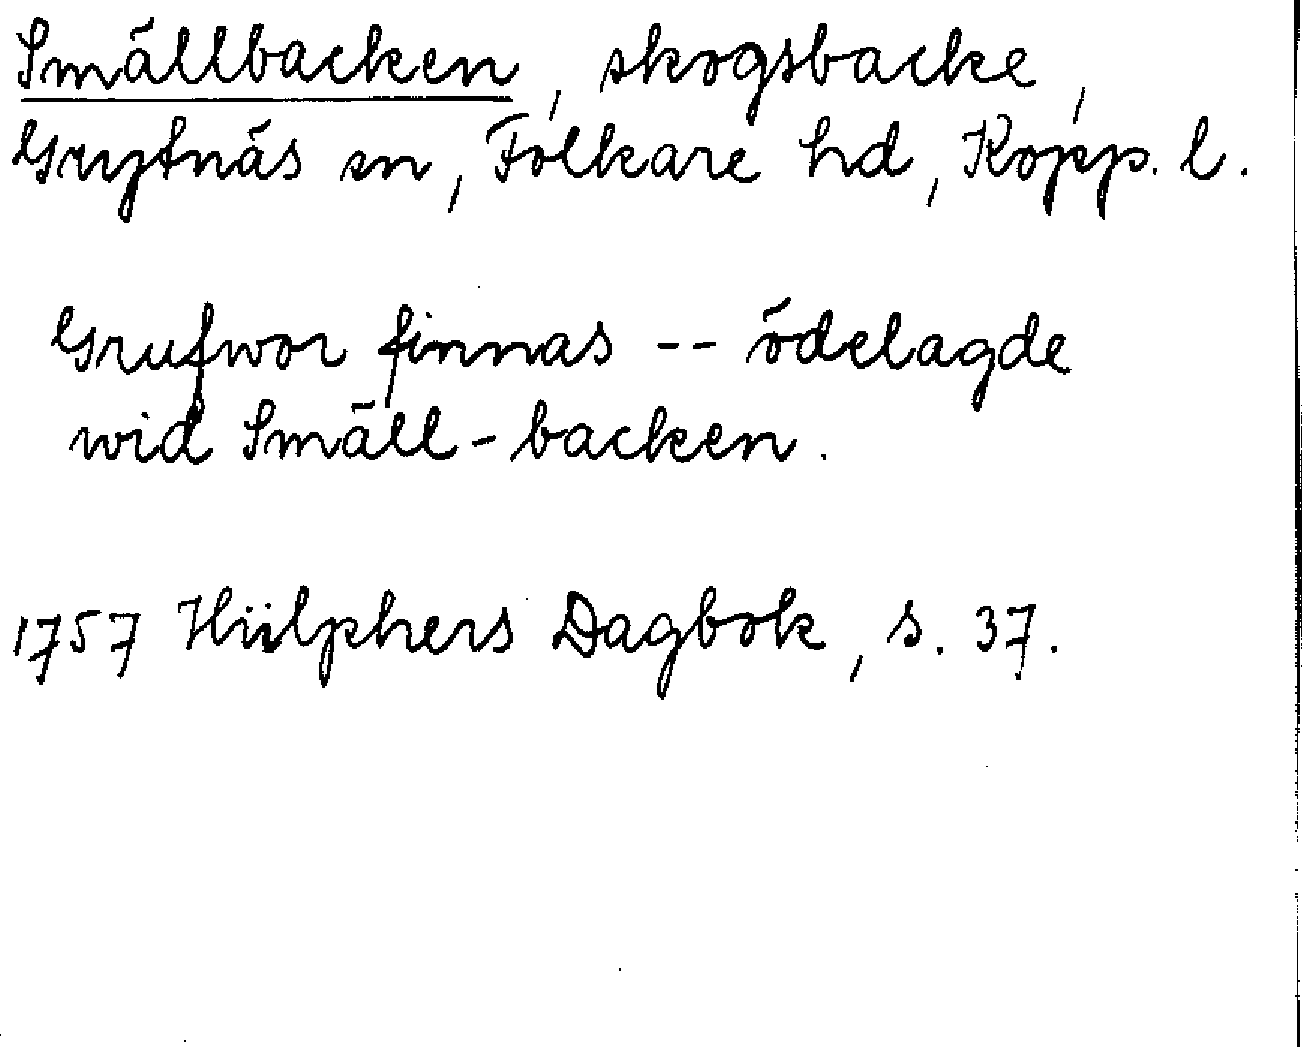 Smällbacken, skogsbacke,
Grytnäs sn, Folkare hd, Kopp. l.
Grufwor finnas -- ödelagde
wid Smäll-backen.
1757 Hülphers Dagbok, s. 37.